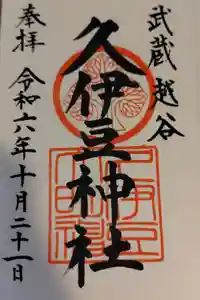 武蔵越谷
久伊豆神社
奉拝
令和六年十月二十一日